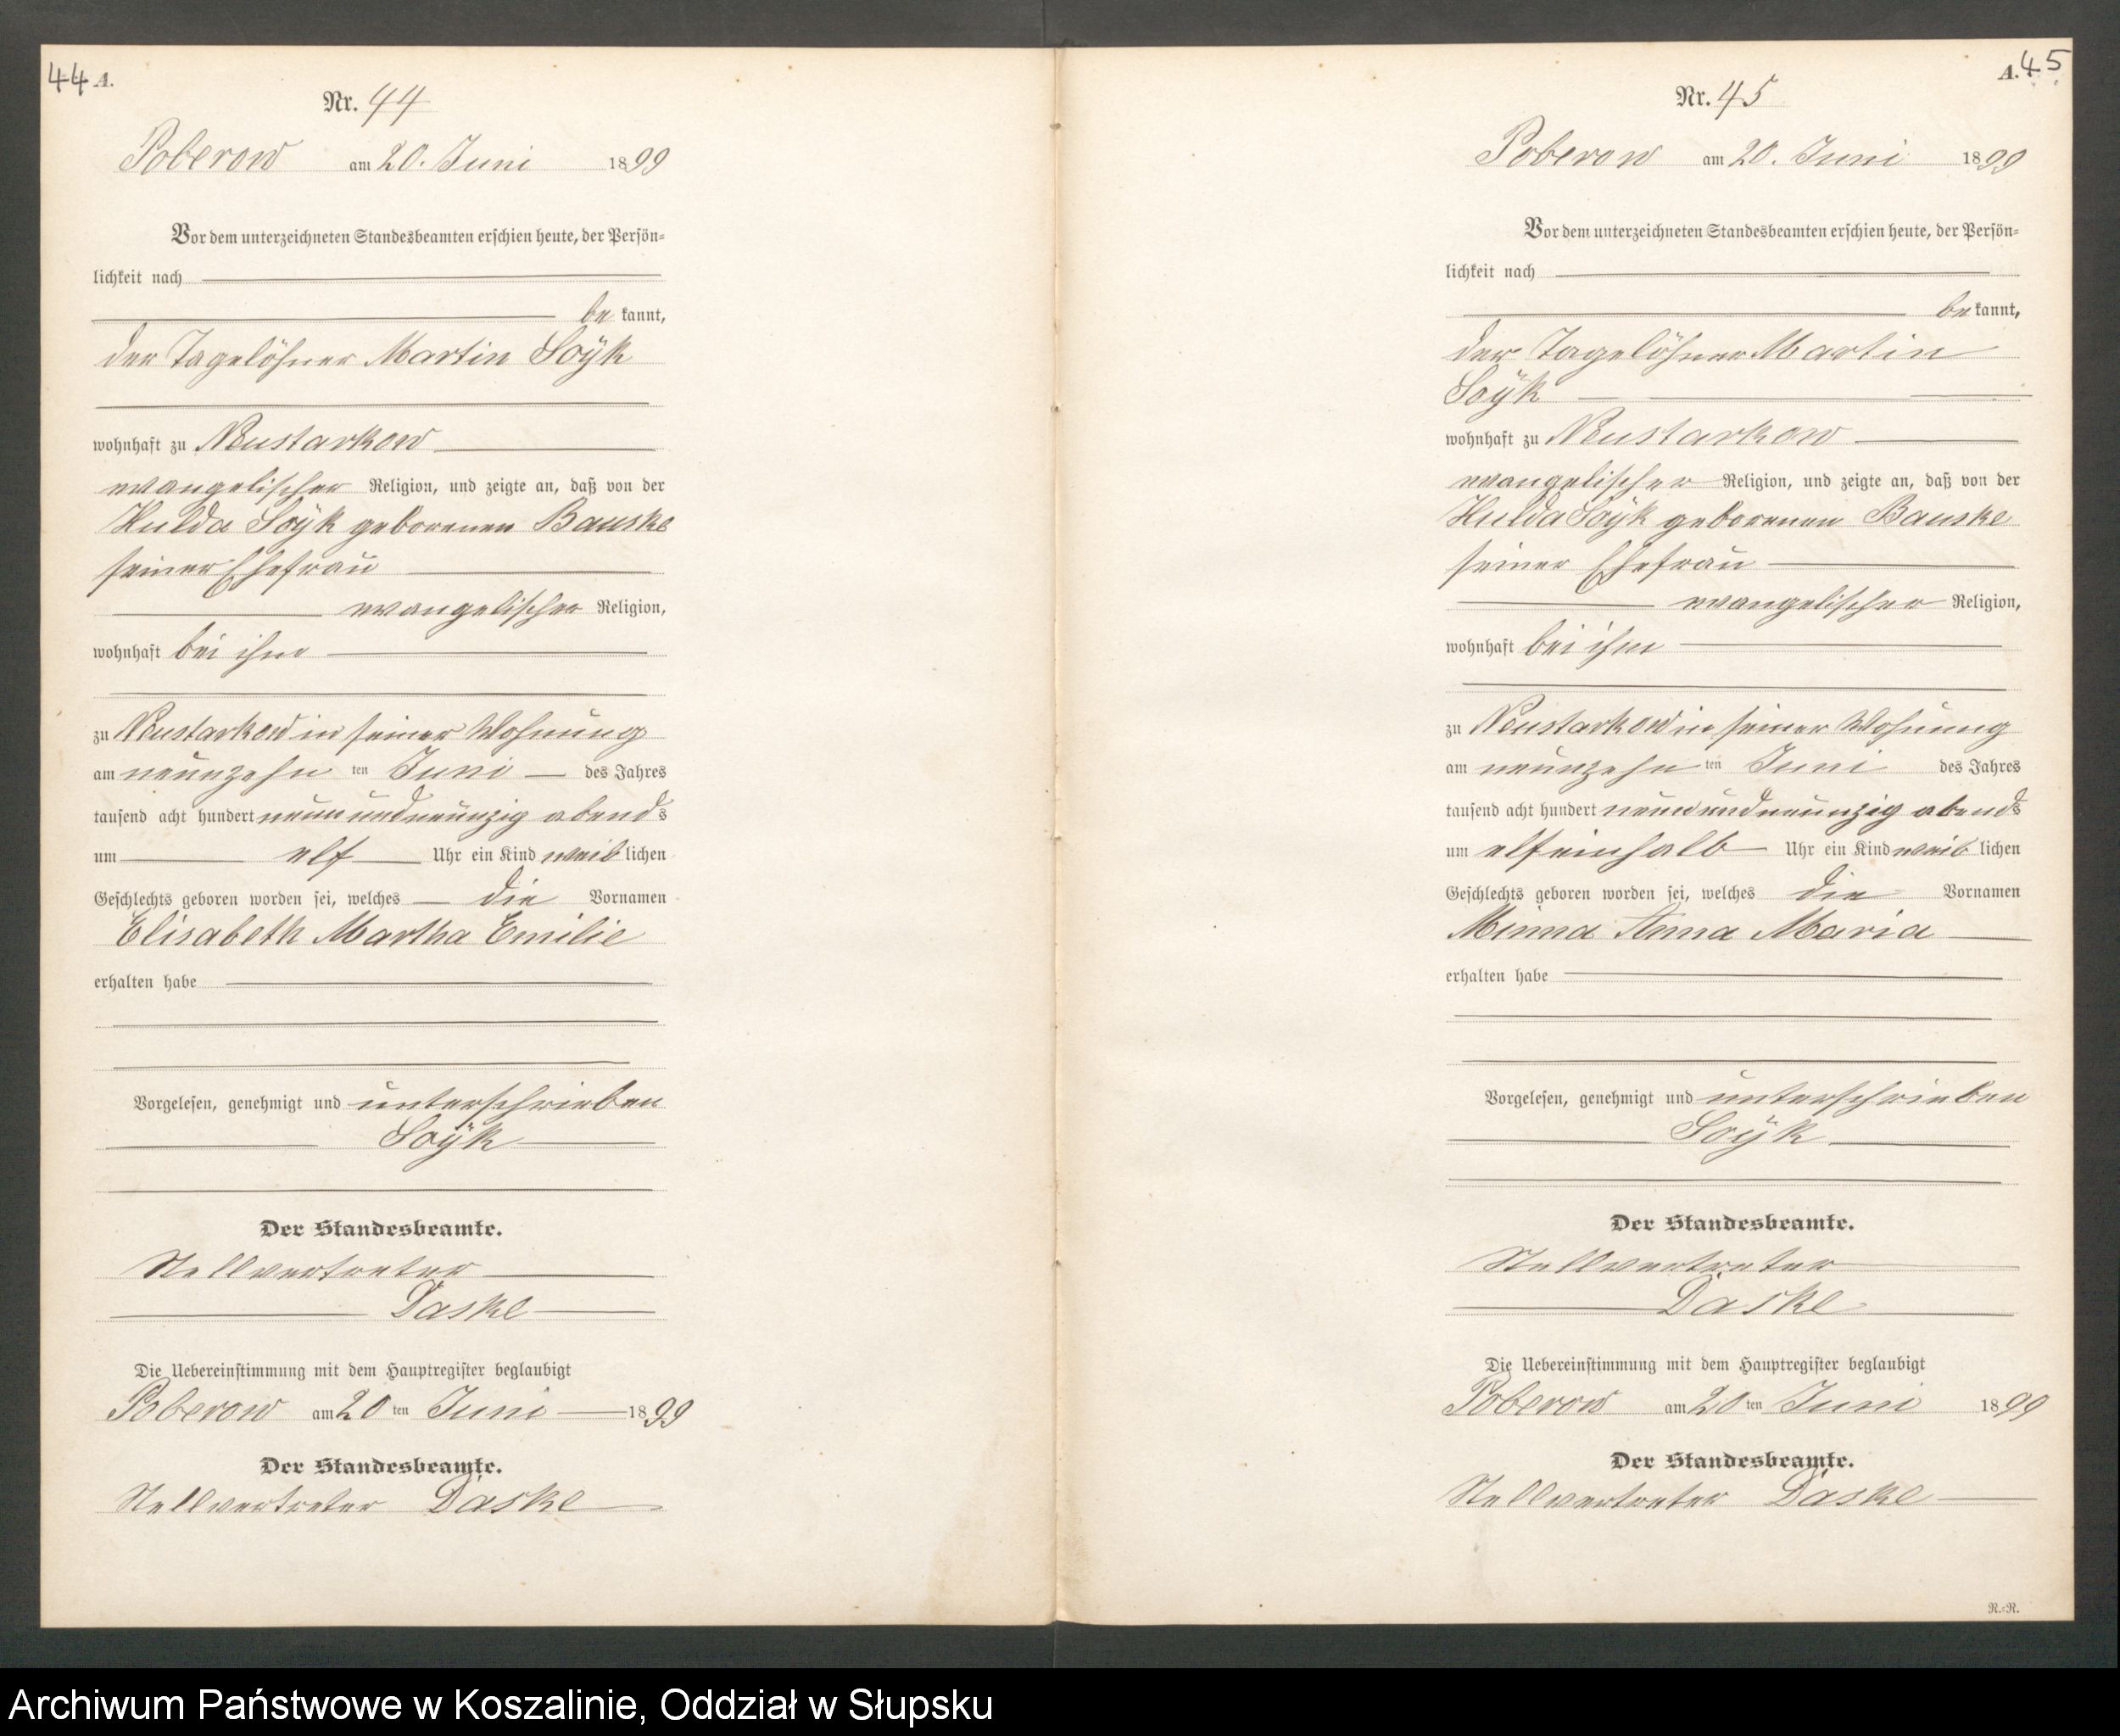 44 A.
Nr. 44
Poberow am 20. Juni 1899
Vor dem unterzeichneten Standesbeamten erschien heute, der Persön-
lichkeit nach
be kannt,
der Tagelöhner Martin Soÿk
wohnhaft zu Neustarkow
evangelischer Religion, und zeigte an, daß von der
Hulda Soÿk geborenen Bauske
seiner Ehefrau
evangelischer Religion,
wohnhaft bei ihm
zu Neustarkow in seiner Wohnung
am neunzehn ten Juni des Jahres
tausend acht hundert neun und neunzig abends
um elf Uhr ein Kind weib lichen
Geschlechts geboren worden sei, welches die Vornamen
Elisabeth Martha Emilie
erhalten habe
Vorgelesen, genehmigt und unterschrieben
Soÿk
Der Standesbeamte.
Stellvertreter
Daske
Die Uebereinstimmung mit dem Hauptregister beglaubigt
Poberow am 20 ten Juni 1899
Der Standesbeamte.
Stellvertreter Daske
A. 45
Nr. 45
Poberow am 20. Juni 1899
Vor dem unterzeichneten Standesbeamten erschien heute, der Persön-
lichkeit nach
be kannt,
der Tagelöhner Martin
Soÿk
wohnhaft zu Neustarkow
evangelischer Religion, und zeigte an, daß von der
Hulda Soÿk geborenen Bauske
seiner Ehefrau
evangelischer Religion,
wohnhaft bei ihm
zu Neustarkow in seiner Wohnung
am neunzehn ten Juni des Jahres
tausend acht hundert neun und neunzig abends
um elfeinhalb Uhr ein Kind weib lichen
Geschlechts geboren worden sei, welches die Vornamen
Minna Anna Maria
erhalten habe
Vorgelesen, genehmigt und unterschrieben
Soÿk
Der Standesbeamte.
Stellvertreter
Daske
Die Uebereinstimmung mit dem Hauptregister beglaubigt
Poberow am 20 ten Juni 1899
Der Standesbeamte.
Stellvertreter Daske
R.=R.
Archiwum Państwowe w Koszalinie, Oddział w Słupsku